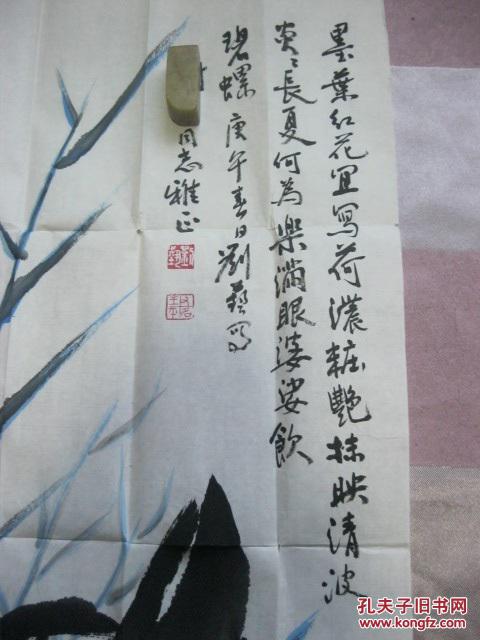 墨葉紅花宜寫荷濃粧艷抹映清波
炎々長夏何為樂滿眼婆娑飲
碧螺 庚午春日劉藝寫
同志雅正
孔夫子旧书网
www.kongfz.com